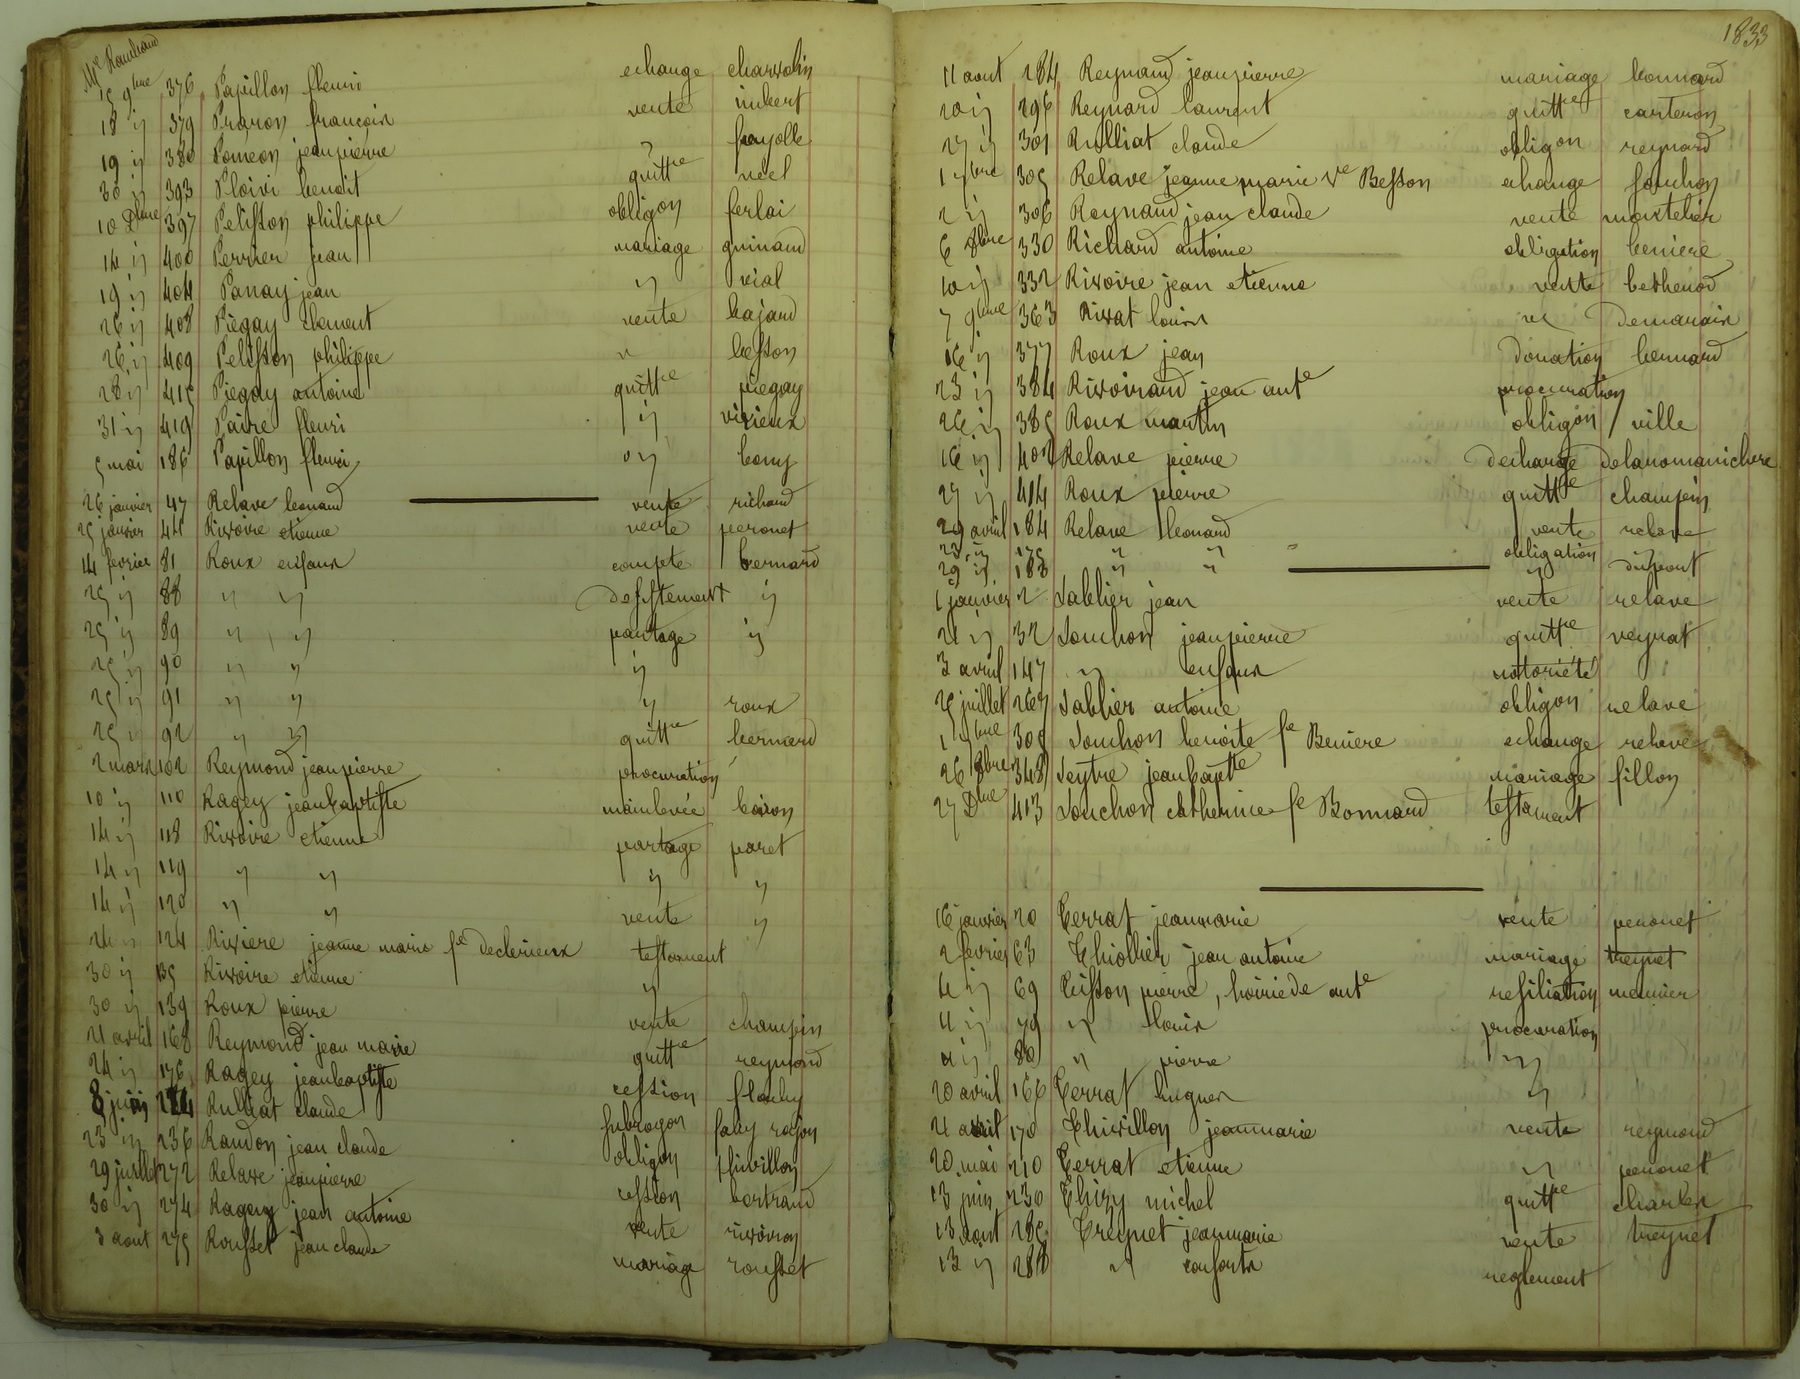 Me Rambaud
15 9bre 376 Papillon fleuri echange charvolin
18 ij 379 Praron francois vente imbert
19 ij 380 Pomeon jeanpierre ij fayolle
30 ij 393 Ploivi benoit quittce neel
10 Dbre 397 Pelisson philippe obligon ferlai
14 ij 400 Perrier jean mariage guinand
19 ij 404 Panay jean ij vial
26 ij 408 Piegay clement vente bajard
26 ij 409 Pelisson philippe ij besson
28 ij 415 Piegay antoine quittce piegay
31 ij 419 Paire fleuri ij virieux
5 mai 186 Papillon fleuri ij bony
26 janvier 47 Relave leonard vente richard
25 janvier 44 Rivoire etienne vente peronet
14 fevrier 81 Roux enfans compte bernard
25 ij 88 ij ij desistement ij
25 ij 89 ij ij partage ij
25 ij 90 ij ij ij
25 ij 91 ij ij ij roux
25 ij 92 ij ij quittce bernard
2 mars 102 Reymond jeanpierre procuration
10 ij 110 Ragey jeanbaptiste mainlevée
14 ij 118 Rivoire etienne partage paret
14 ij 119 ij ij ij ij
14 ij 120 ij ij vente ij
24 ij 124 Riviere jeanne marie fe Declerieux testament
30 ij 135 Rivoire etienne ij
30 ij 139 Roux pierre vente champin
21 avril 168 Reymond jean marie quittce reymond
24 ij 176 Ragey jeanbaptiste cession flachy
8 juin 224 Rulliat claude subrogon
23 ij 236 Randon jean claude obligon thivillon
29 juillet 272 Relave jeanpierre cession bertrand
30 ij 274 Ragey jean antoine vente rivoiron
3 aout 275 Rousset jean claude mariage rousset
1833
11 aout 284 Reynaud jeanpierre mariage bonnard
20 ij 296 Reynard laurent quittce carteron
27 ij 301 Rulliat claude obligon reynard
1 7bre 305 Relave jeanne marie Ve Besson echange souchon
2 ij 306 Reynaud jean claude vente martelier
6 8bre 330 Richard antoine obligation beniere
10 ij 332 Rivoire jean etienne vente bethenod
7 9bre 363 Rivat louis ij Demarais
16 ij 377 Roux jean donation bennard
23 ij 384 Rivoirard jean ante procuration
26 ij 385 Roux martin obligon ville
16 ij 402 Relave pierre decharge
27 ij 414 Roux pierre quittce champin
29 avril 184 Relave leonard vente relave
23 ij 175 ij ij obligation
29 ij 183 ij ij ij dupont
1 janvier 2 Sablier jean vente relave
21 ij 32 Souchon jeanpierre quittce veyrat
3 avril 147 ij enfans notoriété
25 juillet 267 Sablier antoine obligon relave
1 7bre 305 Souchon benoite fe Beniere echange relave
26 8bre 348 Seytre jeanbaptte mariage fillon
27 Dbre 413 Souchon catherine fe Bonnard testament
16 janvier 20 Terrat jeanmarie vente peronet
2 fevrier 63 Thiollier jean antoine mariage treynet
4 ij 69 Tisson pierre, hoirie de ante resiliation meunier
11 ij 79 ij louis procuration
11 ij 80 ij pierre ij
20 avril 166 Terrat hugues ij
21 avril 170 Thivillon jeanmarie vente reymond
20 mai 210 Terrat etienne ij peronet
13 juin 230 Thizy michel quittce charles
13 aout 285 Treynet jeanmarie vente treynet
13 ij 288 ij consorts reglement